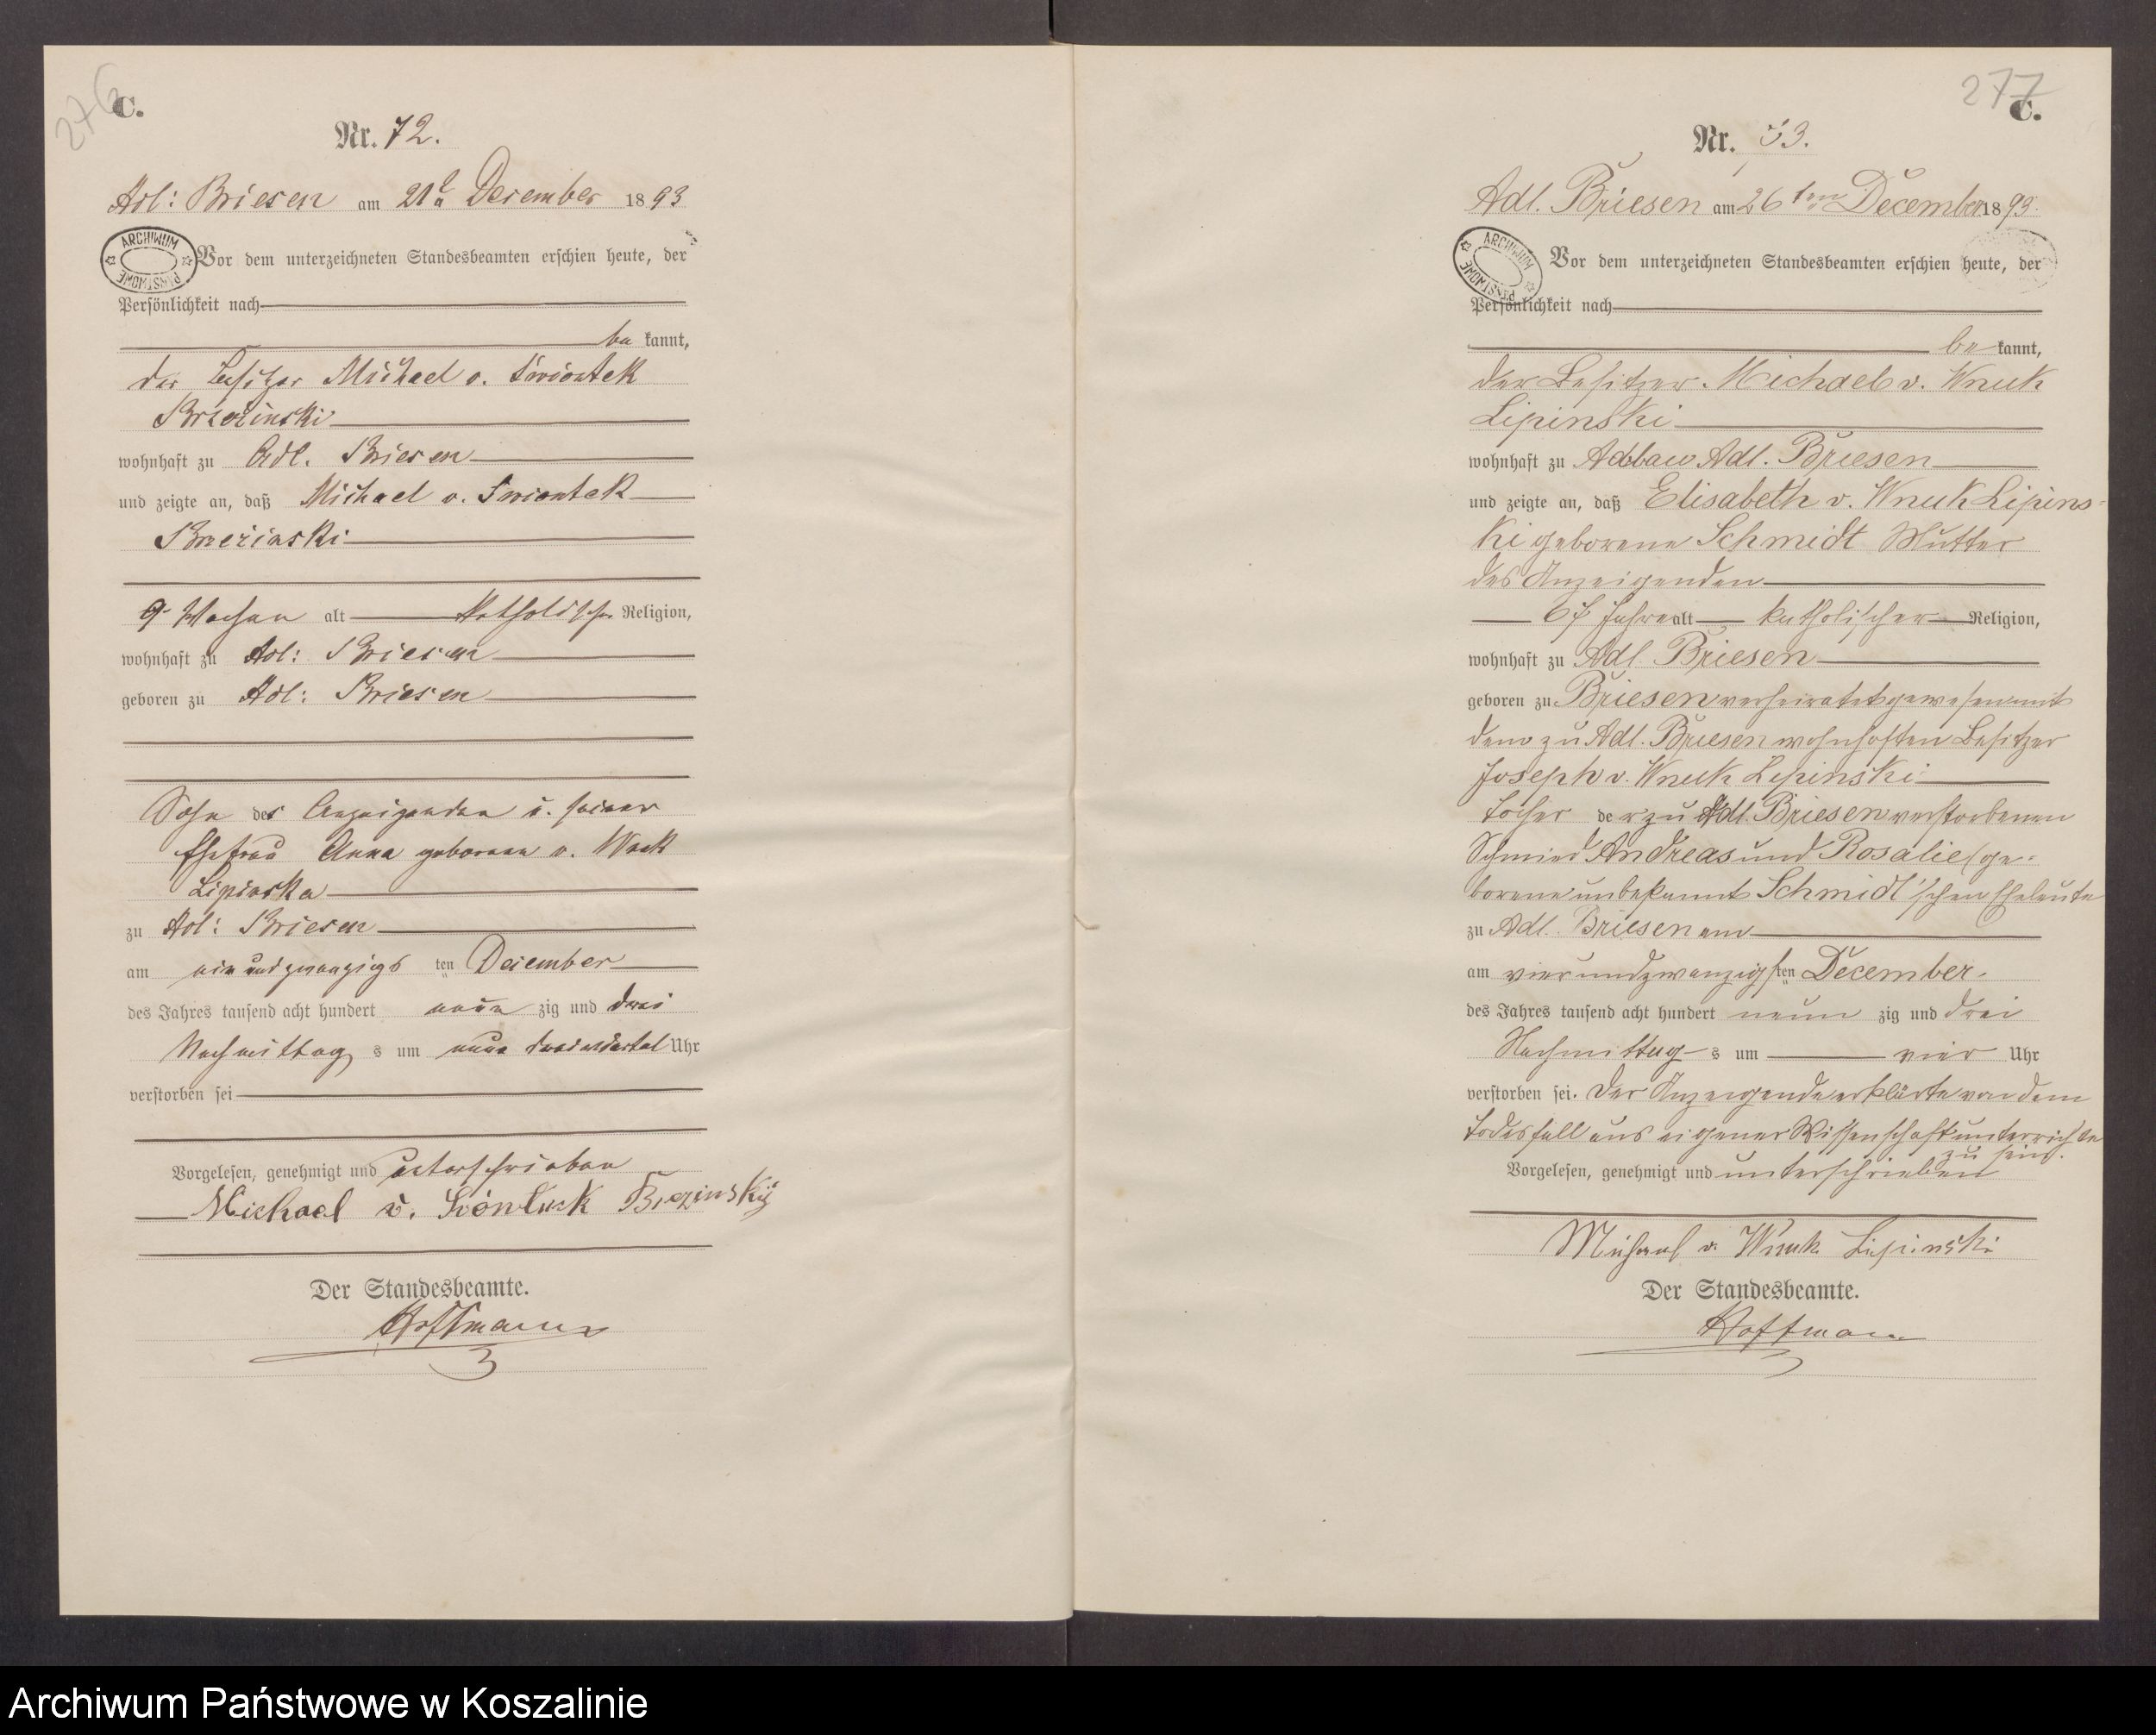 276
C.
Nr. 72.
Adl: Briesen am 21t December 1893
ARCHIWUM PAŃSTWOWE
Vor dem unterzeichneten Standesbeamten erschien heute, der
Persönlichkeit nach
be kannt,
der Besitzer Michael v. Swiontek
Brzezinski
wohnhaft zu Adl. Briesen
und zeigte an, daß Michael v. Swiontek
Brzezinski
9 Wochen alt katholischer Religion,
wohnhaft zu Adl: Briesen
geboren zu Adl: Briesen
Sohn des Anzeigenden u. seiner
Ehefrau Anna geborenen v. Wnuk
Lipinska
zu Adl: Briesen
am ein und zwanzigs ten December
des Jahres tausend acht hundert neun zig und drei
Nachmittag s um neun dreiviertel Uhr
verstorben sei
Vorgelesen, genehmigt und unterschrieben
Michael v. Brezinski
Der Standesbeamte.
Hoffmann
277
C.
Nr. 73.
Adl. Briesen am 26ten December 1893.
ARCHIWUM PAŃSTWOWE
Vor dem unterzeichneten Standesbeamten erschien heute, der
Persönlichkeit nach
be kannt,
der Besitzer Michael v. Wnuk
Lipinski
wohnhaft zu Adl. Briesen
und zeigte an, daß Elisabeth v. Wnuk Lipins-
ki geborene Schmidt Mutter
des Anzeigenden
67 Jahre alt katholischer Religion,
wohnhaft zu Adl. Briesen
geboren zu Briesen verheiratet gewesen mit
dem zu Adl. Briesen wohnhaften Besitzer
Joseph v. Wnuk Lipinski
Tochter der zu Adl. Briesen verstorbenen
Schmied Andreas und Rosalie (ge-
borene unbekannt Schmidt'schen Eheleute
zu Adl. Briesen am
am vierundzwanzigsten December
des Jahres tausend acht hundert neun zig und drei
Nachmittag s um vier Uhr
verstorben sei. Der Anzeigende erklärte von dem
Todesfall aus eigener Wissenschaft unterrichtet
zu sein.
Vorgelesen, genehmigt und unterschrieben
Michael v. Wnuk Lipinski
Der Standesbeamte.
Hoffmann
Archiwum Państwowe w Koszalinie